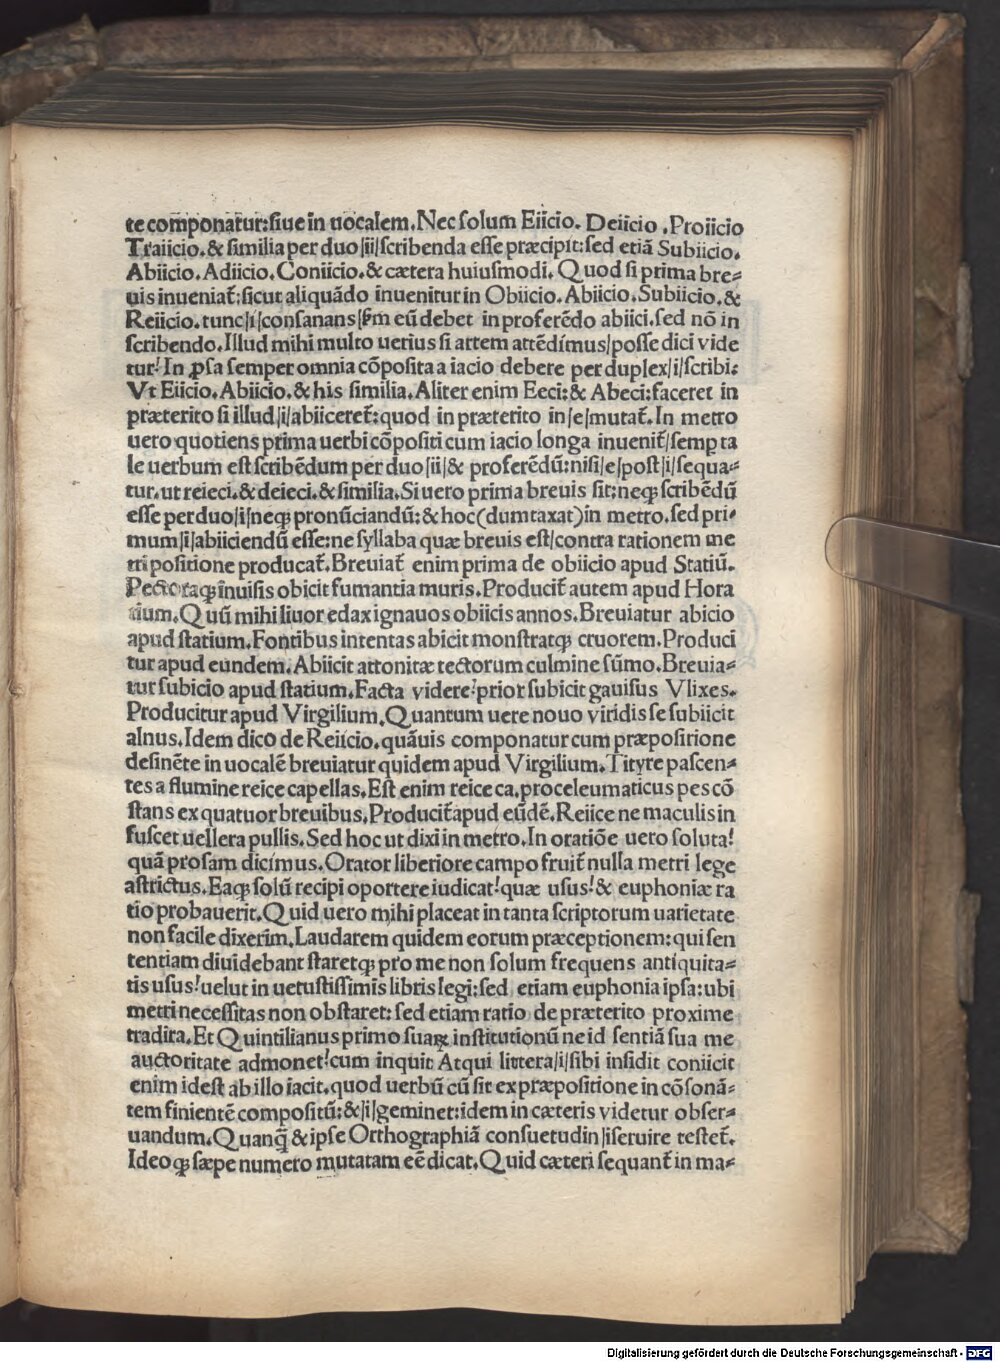 te componatur:siue in uocalem.Nec solum Eiicio. Deiicio .Proiicio
Traiicio.& similia per duo|ii|scribenda esse præcipit:sed etiã Subiicio.
Abiicio.Adiicio.Coniicio.& cætera huiusmodi.Quod si prima bre=
uis inueniat̃:sicut aliquãdo inuenitur in Obiicio.Abiicio.Subiicio.&
Reiicio.tunc|i|consanans|ẜm eũ debet in proferẽdo abiici.sed nõ in
scribendo.Illud mihi multo uerius si artem attẽdimus|posse dici vide
tur! In ꝓsa semper omnia cõposita a iacio debere per duplex|i|scribi:
Vt Eiicio.Abiicio.& his similia.Aliter enim Eeci:& Abeci:faceret in
præterito si illud|i|abiiceret̃:quod in præterito in|e|mutat̃.In metro
uero quotiens prima uerbi cõpositi cum iacio longa inuenit̃|semꝑ ta
le uerbum est scribẽdum per duo|ii|& proferẽdũ:nisi|e|post|i|sequa=
tur.ut reieci.& deieci.& similia.Si uero prima breuis sit:neqꝫ scribẽdũ
esse per duo|i|neqꝫ pronũciandũ:& hoc(dumtaxat)in metro.sed pri=
mum|i|abiiciendũ esse:ne syllaba quæ breuis est|contra rationem me
tri positione producat̃.Breuiat̃ enim prima de obiicio apud Statiũ.
Pectoraqꝫ inuisis obicit fumantia muris.Producit̃ autem apud Hora
tium.Quũ mihi liuor edax ignauos obiicis annos.Breuiatur abicio
apud statium.Fontibus intentas abicit monstratqꝫ cruorem.Produci
tur apud eundem.Abiicit attonitæ tectorum culmine sũmo.Breuia=
tur subicio apud statium.Facta videre!prior subicit gauisus Vlixes.
Producitur apud Virgilium.Quantum uere nouo viridis se subiicit
alnus.Idem dico de Reiicio.quãuis componatur cum præpositione
desinẽte in uocalẽ breuiatur quidem apud Virgilium.Tityre pascen=
tes a flumine reice capellas.Est enim reice ca.proceleumaticus pes cõ
stans ex quatuor breuibus.Producit̃ apud eũdẽ.Reiice ne maculis in
fuscet uellera pullis.Sed hoc ut dixi in metro.In oratiõe uero soluta!
quã prosam dicimus.Orator liberiore campo fruit̃ nulla metri lege
astrictus.Eaqꝫ solũ recipi oportere iudicat!quæ usus!& euphoniæ ra
tio probauerit.Quid uero mihi placeat in tanta scriptorum uarietate
non facile dixerim.Laudarem quidem eorum præceptionem:qui sen
tentiam diuidebant staretqꝫ pro me non solum frequens antiquita=
tis usus!uelut in uetustissimis libris legi:sed etiam euphonia ipsa:ubi
metri necessitas non obstaret: sed etiam ratio de præterito proxime
tradita.Et Quintilianus primo suaꝝ institutionũ ne id sentiã sua me
auctoritate admonet!cum inquit Atqui littera|i|sibi insidit coniicit
enim id est ab illo iacit.quod uerbũ cũ sit ex præpositione in cõsonã=
tem finientẽ compositũ:&|i|geminet:idem in cæteris videtur obser=
uandum.Quanq̃ & ipse Orthographiã consuetudin|iseruire testet̃.
Ideoqꝫ sæpe numero mutatam eẽ dicat.Quid cæteri sequant̃ in ma=
Digitalisierung gefördert durch die Deutsche Forschungsgemeinschaft - DFG